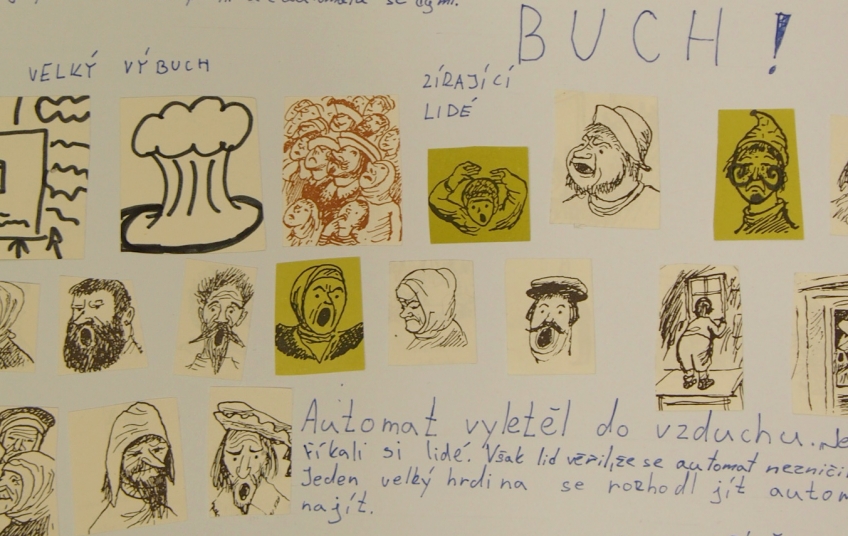 se dými.
BUCH!
VELKÝ VÝBUCH
ZÍRAJÍCÍ
LIDÉ
Automat vyletěl do vzduchu.
říkali si lidé. Však lid věřil, že se automat
Jeden velký hrdina se rozhodl jít
najít.